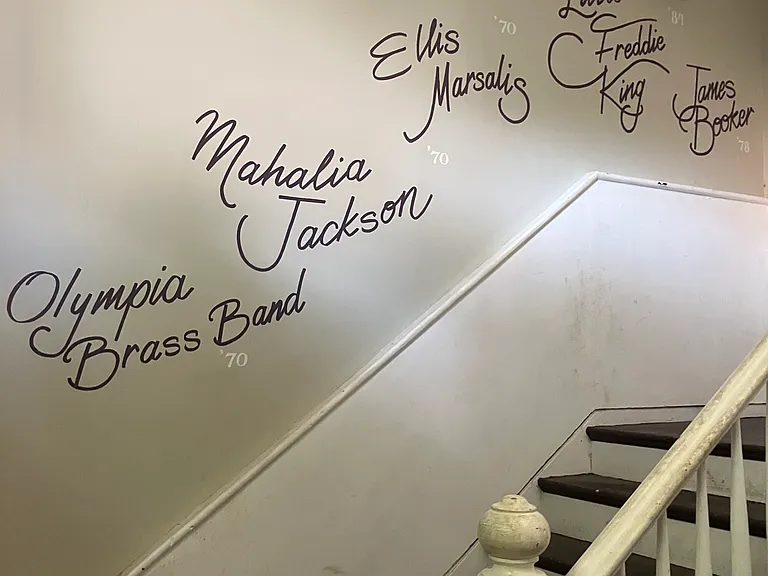 Olympia
Brass Band
'70
Mahalia
Jackson
'70
Ellis
Marsalis
'70
Freddie
King
James
Booker
'78